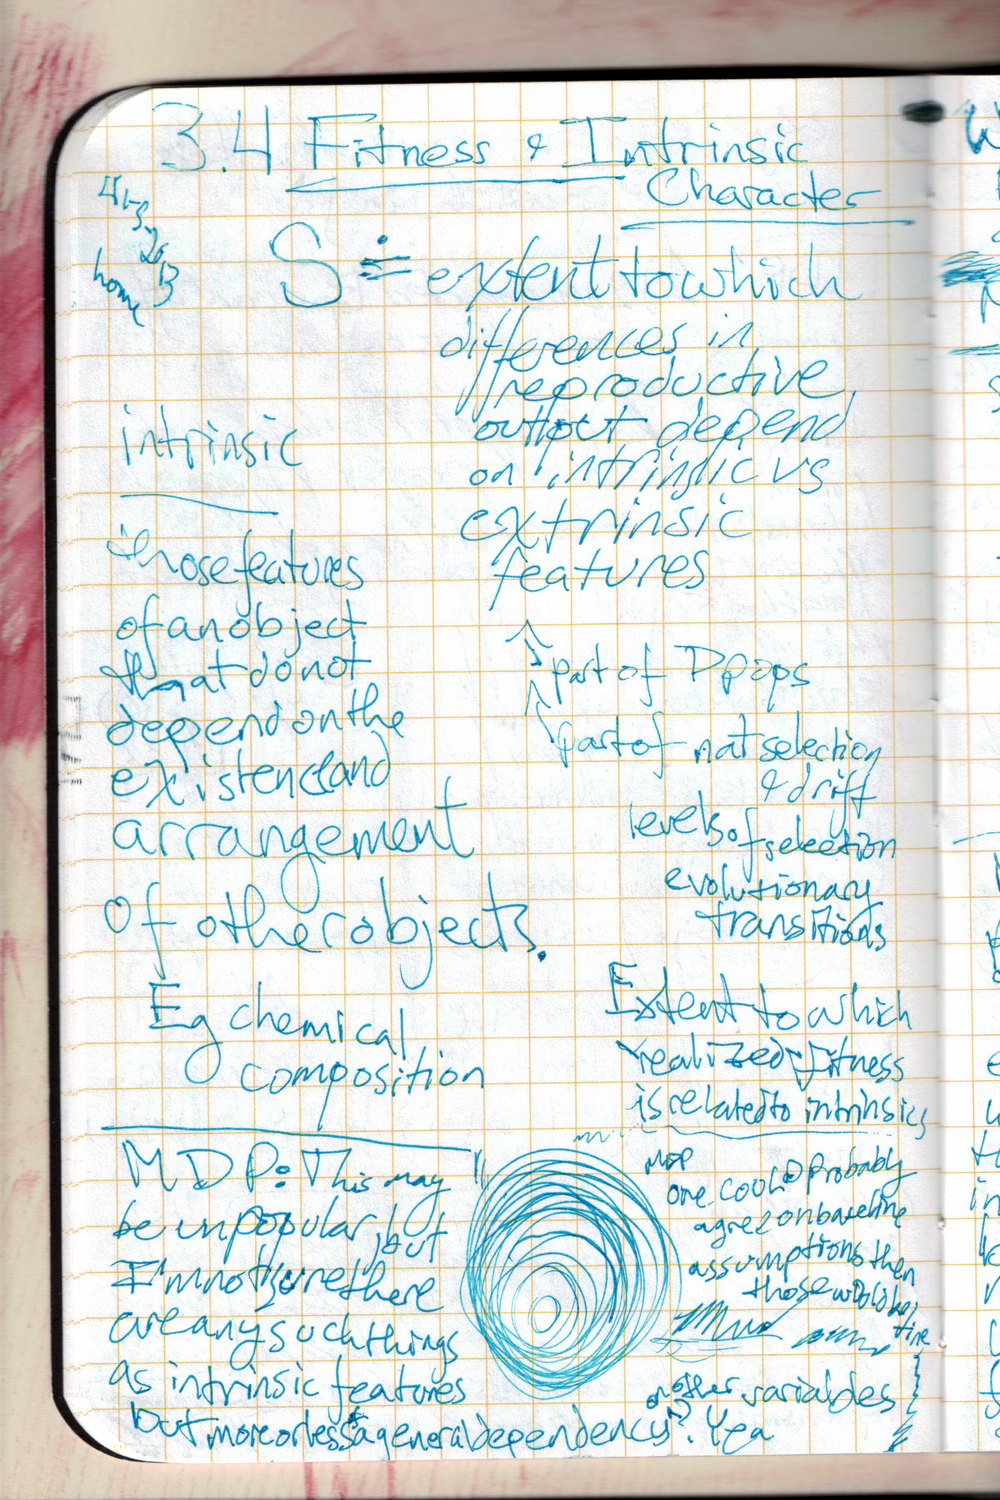 3.4 Fitness & Intrinsic
Character
home
S ≐ extent to which
differences in
reproductive
output depend
on intrinsic vs
extrinsic
features
intrinsic
those features
of an object
that do not
depend on the
existence and
arrangement
of other objects.
Eg chemical
composition
part of Dpops
part of nat selection
& drift
levels of selection
evolutionary
transitions
Extent to which
realized fitness
is related to intrinsics
MDP: This may
be unpopular, but
I'm not sure there
are any such things
as intrinsic features
but more or less a general dependency
on other variables
? Yea
MDP
one could probably
agree on baseline
assumptions then
those would be
fine